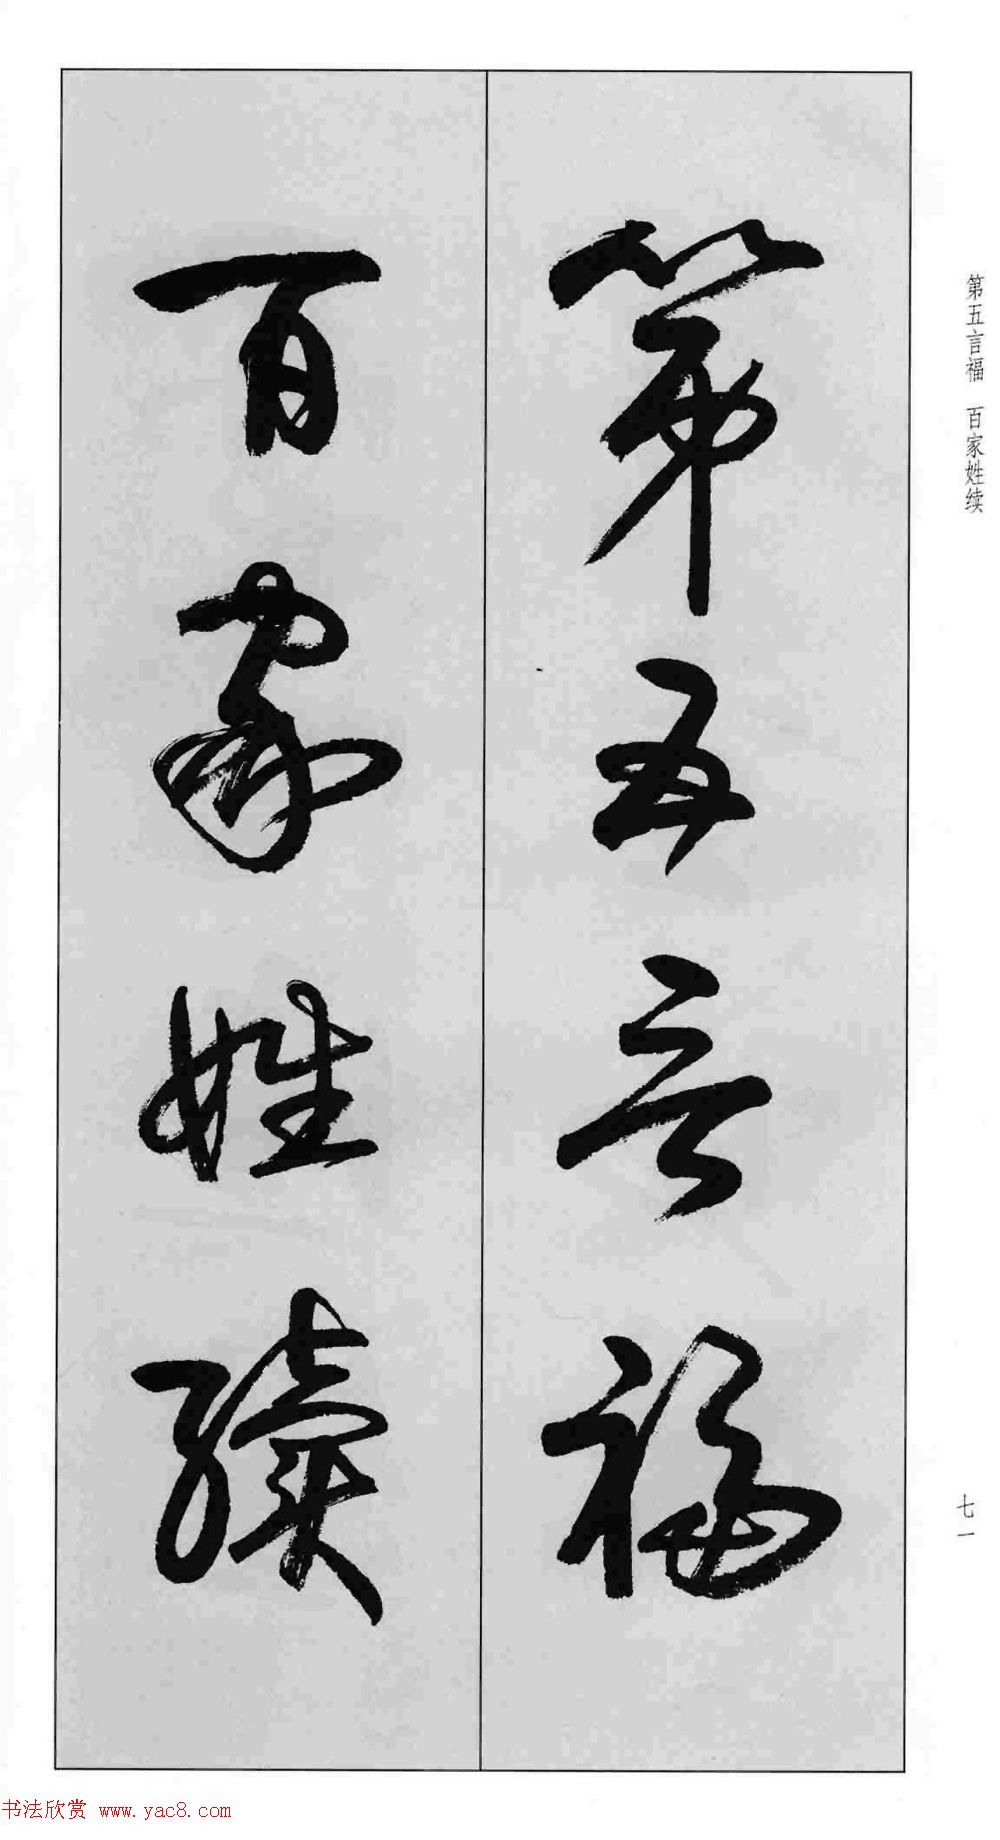 第五言福
百家姓續
第五言福 百家姓续
七一
书法欣赏 www.yac8.com